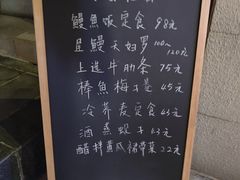 鰻魚飯定食 98元
星鰻天妇罗 100元 120元
上选牛肋条 75元
棒魚梅子羹 45元
冷荞麦定食 45元
酒蒸蛤子 63元
醋拌黄瓜裙带菜 22元